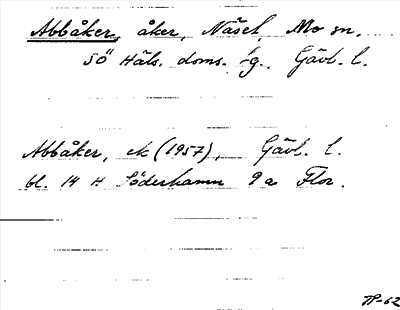 Abbåker, åker, Näset, Mo sn.
SÖ Häls. doms. Gävl. l.
Abbåker, ek (1957), Gävl. l.
bl. 14 H Söderhamn 9 a Flor.
TP-62